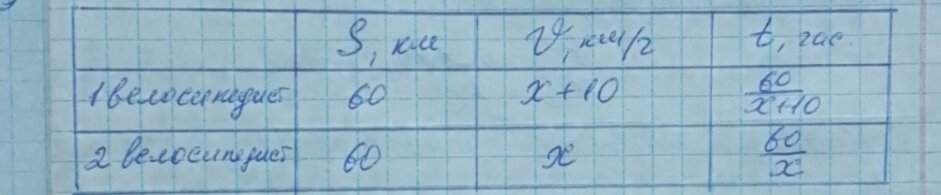 S, км V, км/г t, час
1 велосипедист 60 x+10 60/x+10
2 велосипедист 60 x 60/x